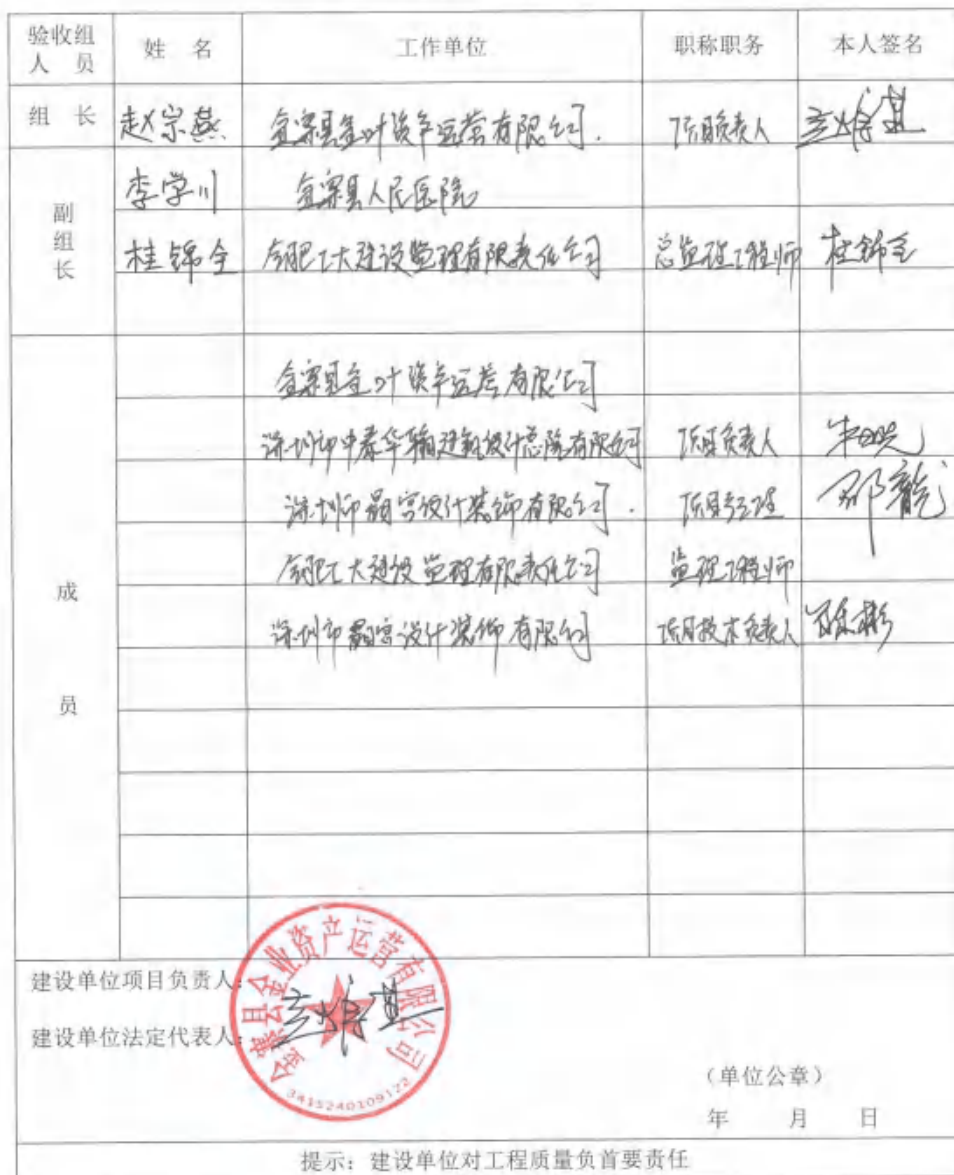 验收组人员 姓 名 工作单位 职称职务 本人签名
组 长 赵宗燕 金寨县金叶资产运营有限公司. 项目负责人
副组长 李学川 金寨县人民医院
桂锦全 合肥工大建设监理有限责任公司 总监理工程师 桂锦全
成员
金寨县金叶资产运营有限公司
深圳市中泰华翰建筑设计总院有限公司 项目负责人
深圳市 设计装饰有限公司. 项目经理 邵龙
合肥工大建设监理有限责任公司 监理工程师
深圳市 设计装饰有限公司 项目技术负责人
建设单位项目负责人:
建设单位法定代表人:
金寨县金业资产运营有限公司
3415240109122
(单位公章)
年 月 日
提示: 建设单位对工程质量负首要责任